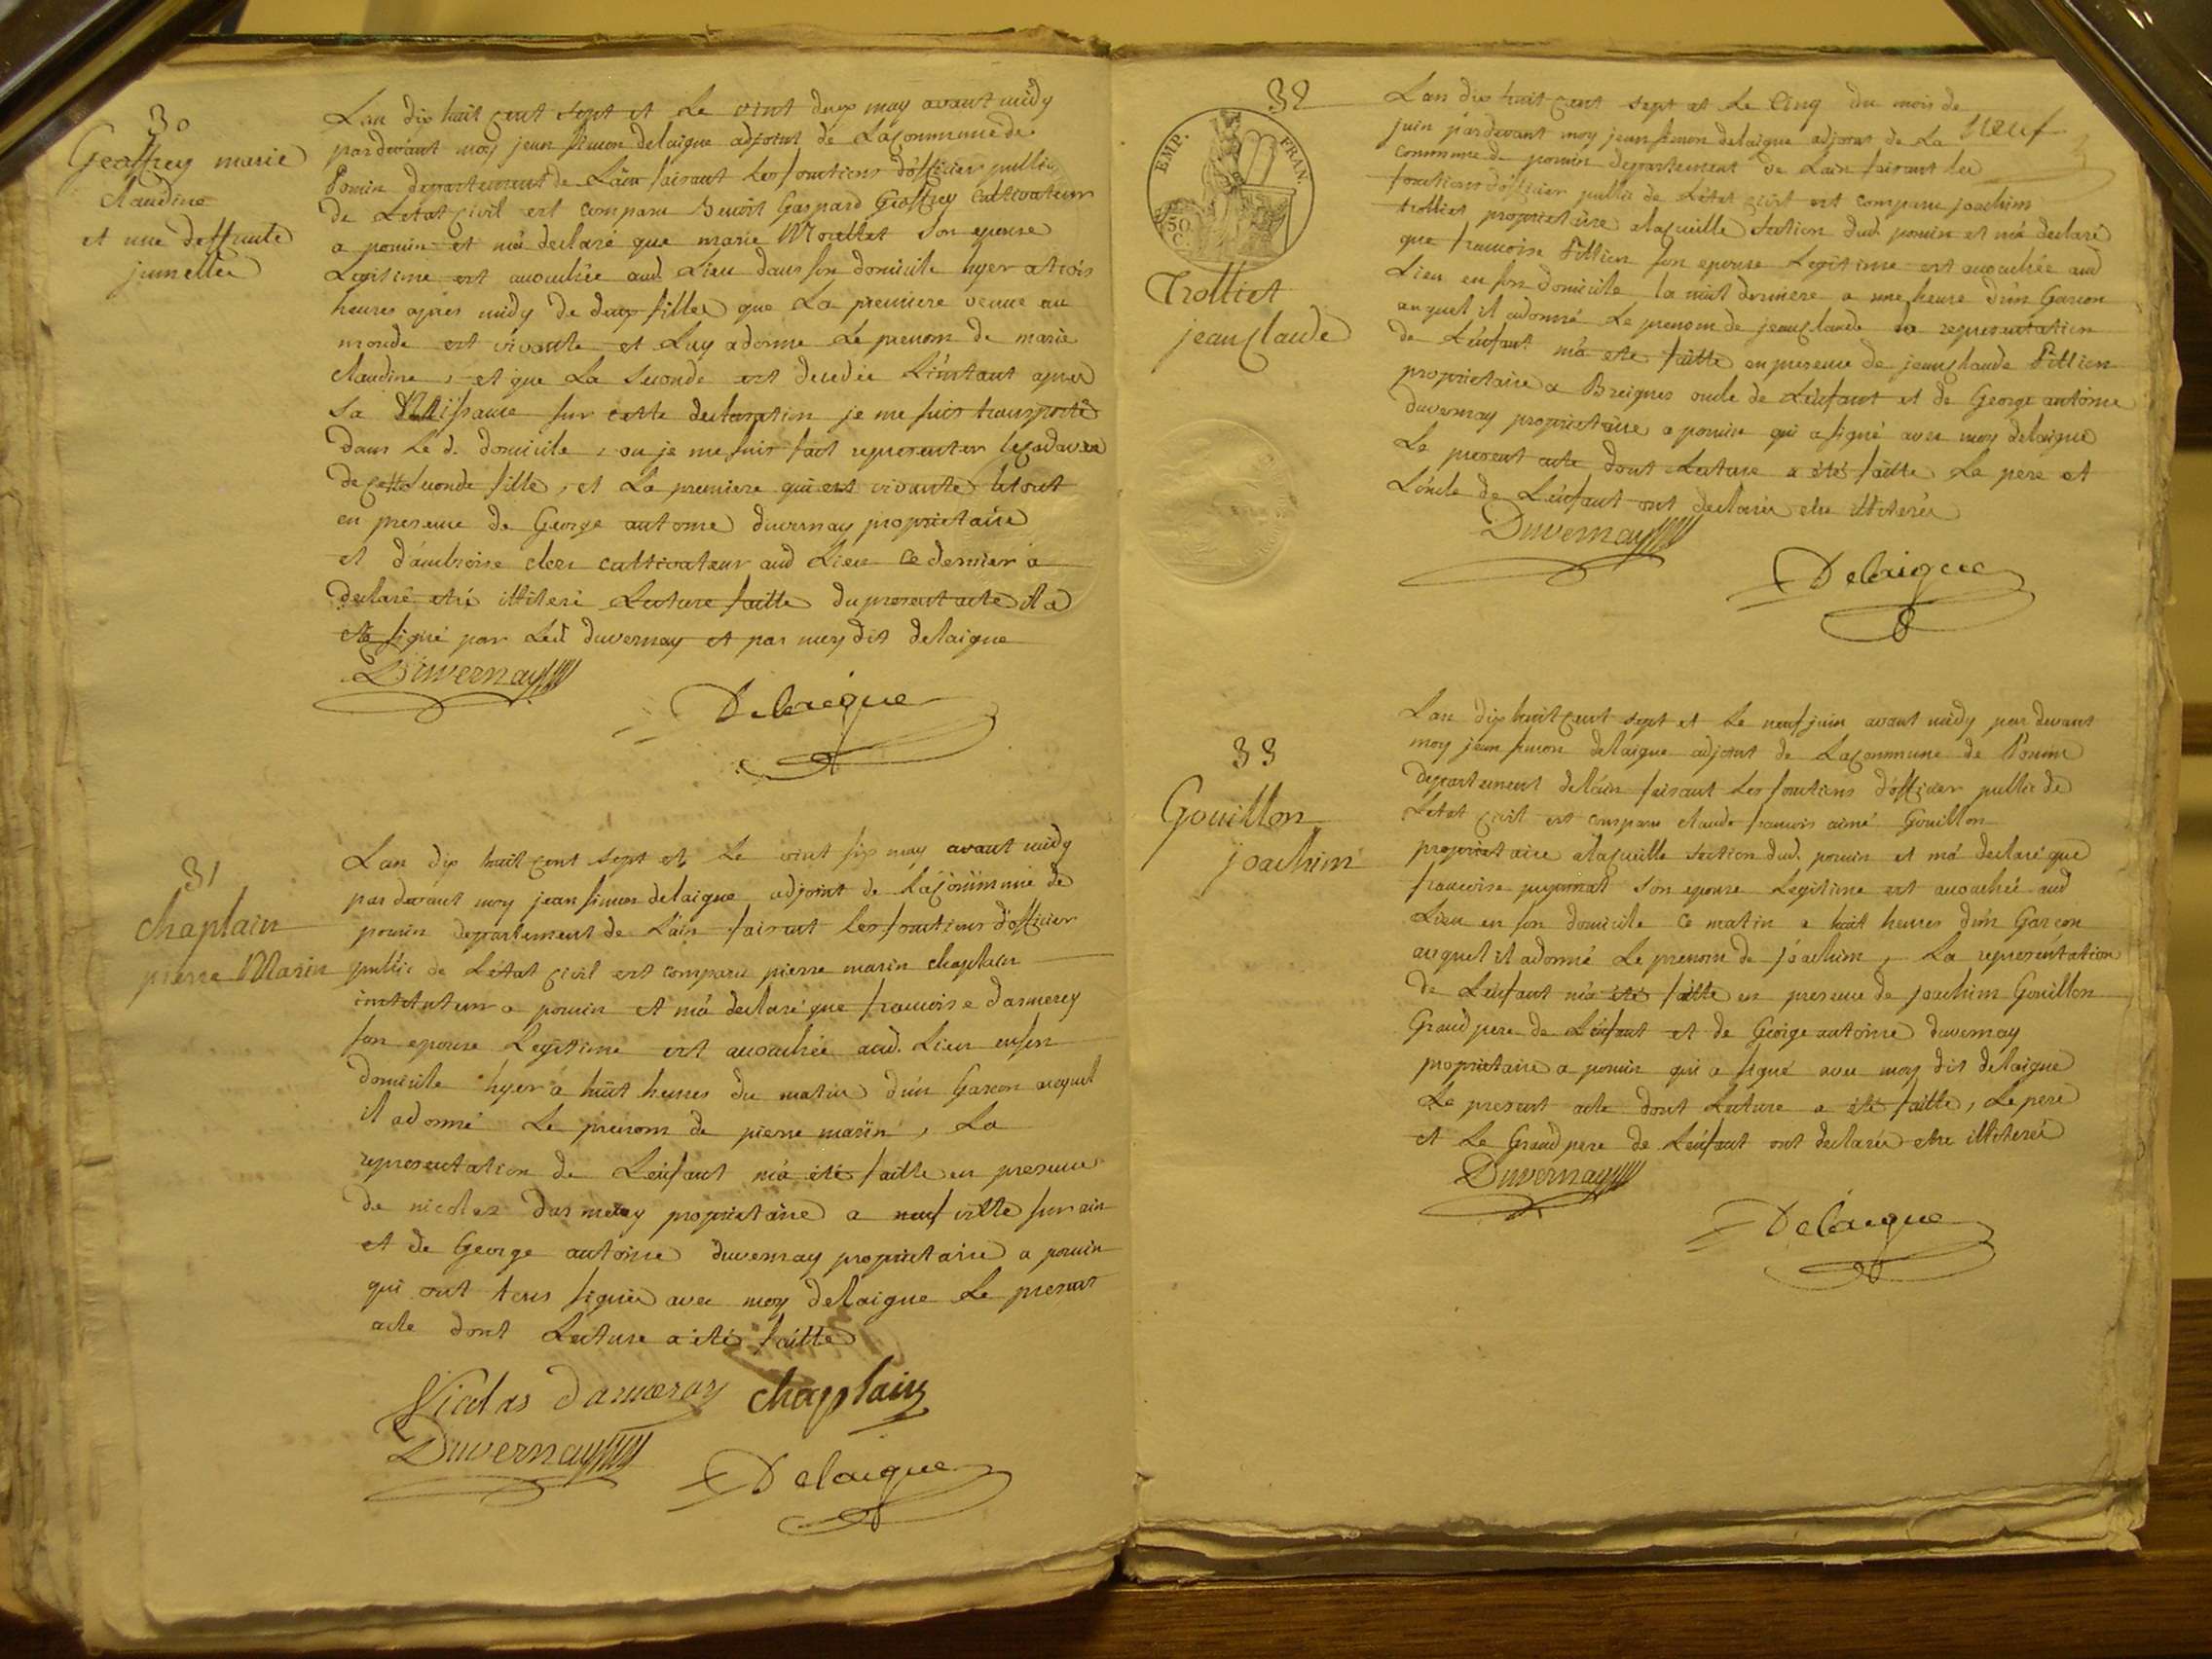 30
Geoffrey marie
claudine
et une deffunte
jumelle
Lan dix huit cent sept et Le vint deux may avant midy
pardevant moy jean simon delaigue adjoint de La commune de
Poncin departement de Lain faisant Les fonctions d'officier public
de Letat civil est comparu Benoit Gaspard Geoffrey Cultivateur
a poncin et m'a declaré que marie Morellet son epouse
Legitime est accouchée aud. Lieu dans son domicile hyer a trois
heures apres midy de deux filles que La premiere venue au
monde est vivante et Luy a donné Le prenom de marie
claudine, et que La seconde est decedée L'instant apres
sa Naissance sur cette declaration je me suis transporté
dans Le d. domicile, ou je me suis fait representer le cadavre
de cette seconde fille, et La premiere qui est vivante le tout
en presence de George antoine duvernay proprietaire
et d'ambroise clerc cultivateur aud Lieu ce dernier a
declaré etre illiteré Lecture faitte du present acte il a
ete signé par Led duvernay et par moy dit delaigue
Duvernay
Delaigue
31
chaplain
pierre Marin
Lan dix huit cent sept et Le vint six may avant midy
par devant moy jean simon delaigue adjoint de La commune de
poncin departement de Lain faisant Les fonctions d'officier
public de L'état civil est comparu pierre marin chaplain
instituteur a poncin et m'a declaré que francoise darmerey
son epouse Legitime est accouchée aud. Lieu en son
domicile hyer a huit heures du matin d'un Garcon auquel
il a donné Le prenom de pierre marin, La
representation de L'enfant m'a été faitte en presence
de nicolas darmerey proprietaire a neuf ville sur ain
et de George antoine duvernay proprietaire a poncin
qui ont tous signés avec moy delaigue Le present
acte dont Lecture a été faitte
Nicolas darmeray chaplain
Duvernay
Delaigue
32
EMP. FRAN.
50 C.
Trolliet
jean claude
neuf
Lan dix huit cent sept et Le Cinq du mois de
juin pardevant moy jean simon delaigue adjoint de La
commune de poncin departement de Lain faisant les
fonctions d'officier public de Létat civil est comparu joachim
trolliet proprietaire a la cueille section dud. poncin et m'a declaré
que francoise Fillion son epouse Legitime est accouchée aud
Lieu en son domicile la nuit derniere a une heure d'un Garcon
auquel il a donné Le prenom de jean claude la representation
de L'enfant m'a ete faitte en presence de jean claude Fillion
proprietaire a Breignes oncle de L'enfant et de George antoine
duvernay proprietaire a poncin qui a signé avec moy delaigue
Le present acte dont Lecture a été faitte Le pere et
L'oncle de L'enfant ont declarés etre illiterés
Duvernay
Delaigue
33
Gouillon
joachim
Lan dix huit cent sept et Le neuf juin avant midy par devant
moy jean simon delaigue adjoint de La commune de Poncin
departement de lain faisant Les fonctions d'officier public de
Letat civil est comparu claude francois aimé Gouillon
proprietaire a la cueille section dud. poncin et m'a declaré que
francoise son epouse Legitime est accouchée aud
Lieu en son domicile ce matin a huit heures d'un Garcon
auquel il a donné Le prenom de joachim, La representation
de L'enfant m'a été faitte en presence de joachim Gouillon
Grand pere de L'enfant et de George antoine duvernay
proprietaire a poncin qui a signé avec moy dit delaigue
Le present acte dont Lecture a été faitte, Le pere
et Le Grand pere de L'enfant ont declarés etre illiterés
Duvernay
Delaigue